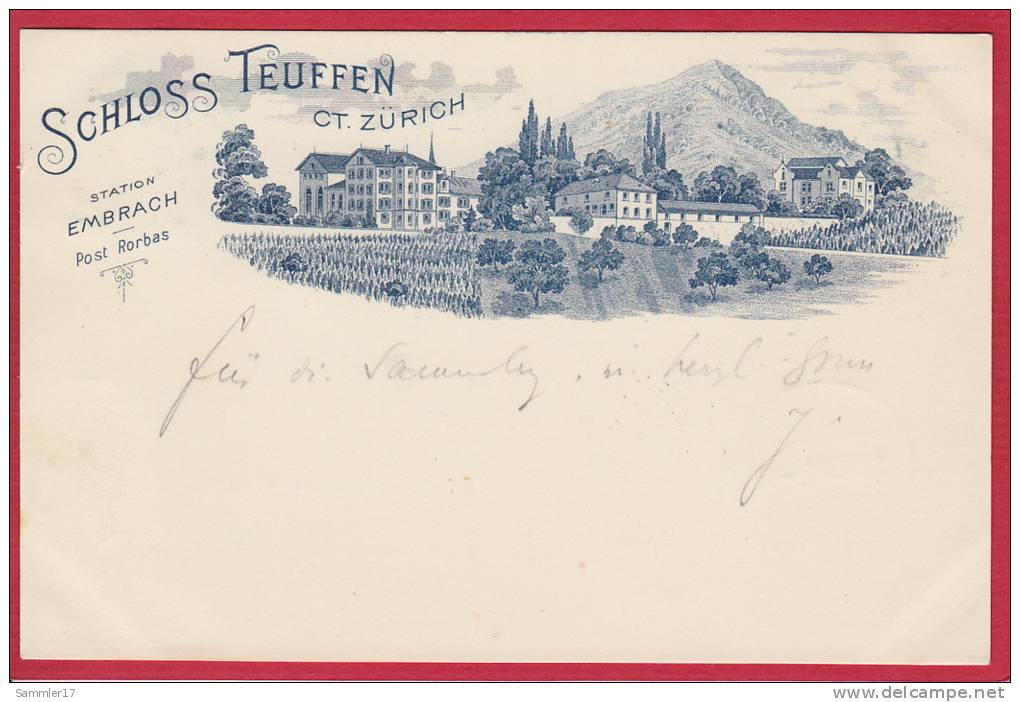 SCHLOSS TEUFFEN
CT. ZÜRICH
STATION
EMBRACH
Post Rorbas
für die Sammlung, u. herzl. Gruss
J.
Sammler17
http://www.delcampe.net